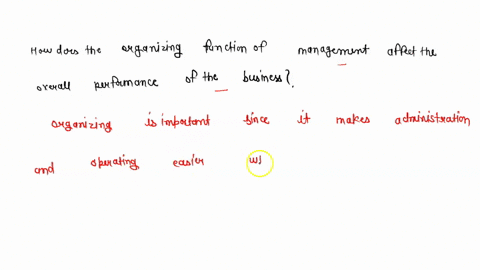 How does the organizing function of management affect the
overall performance of the business?
organizing is important since it makes administration
and operating easier